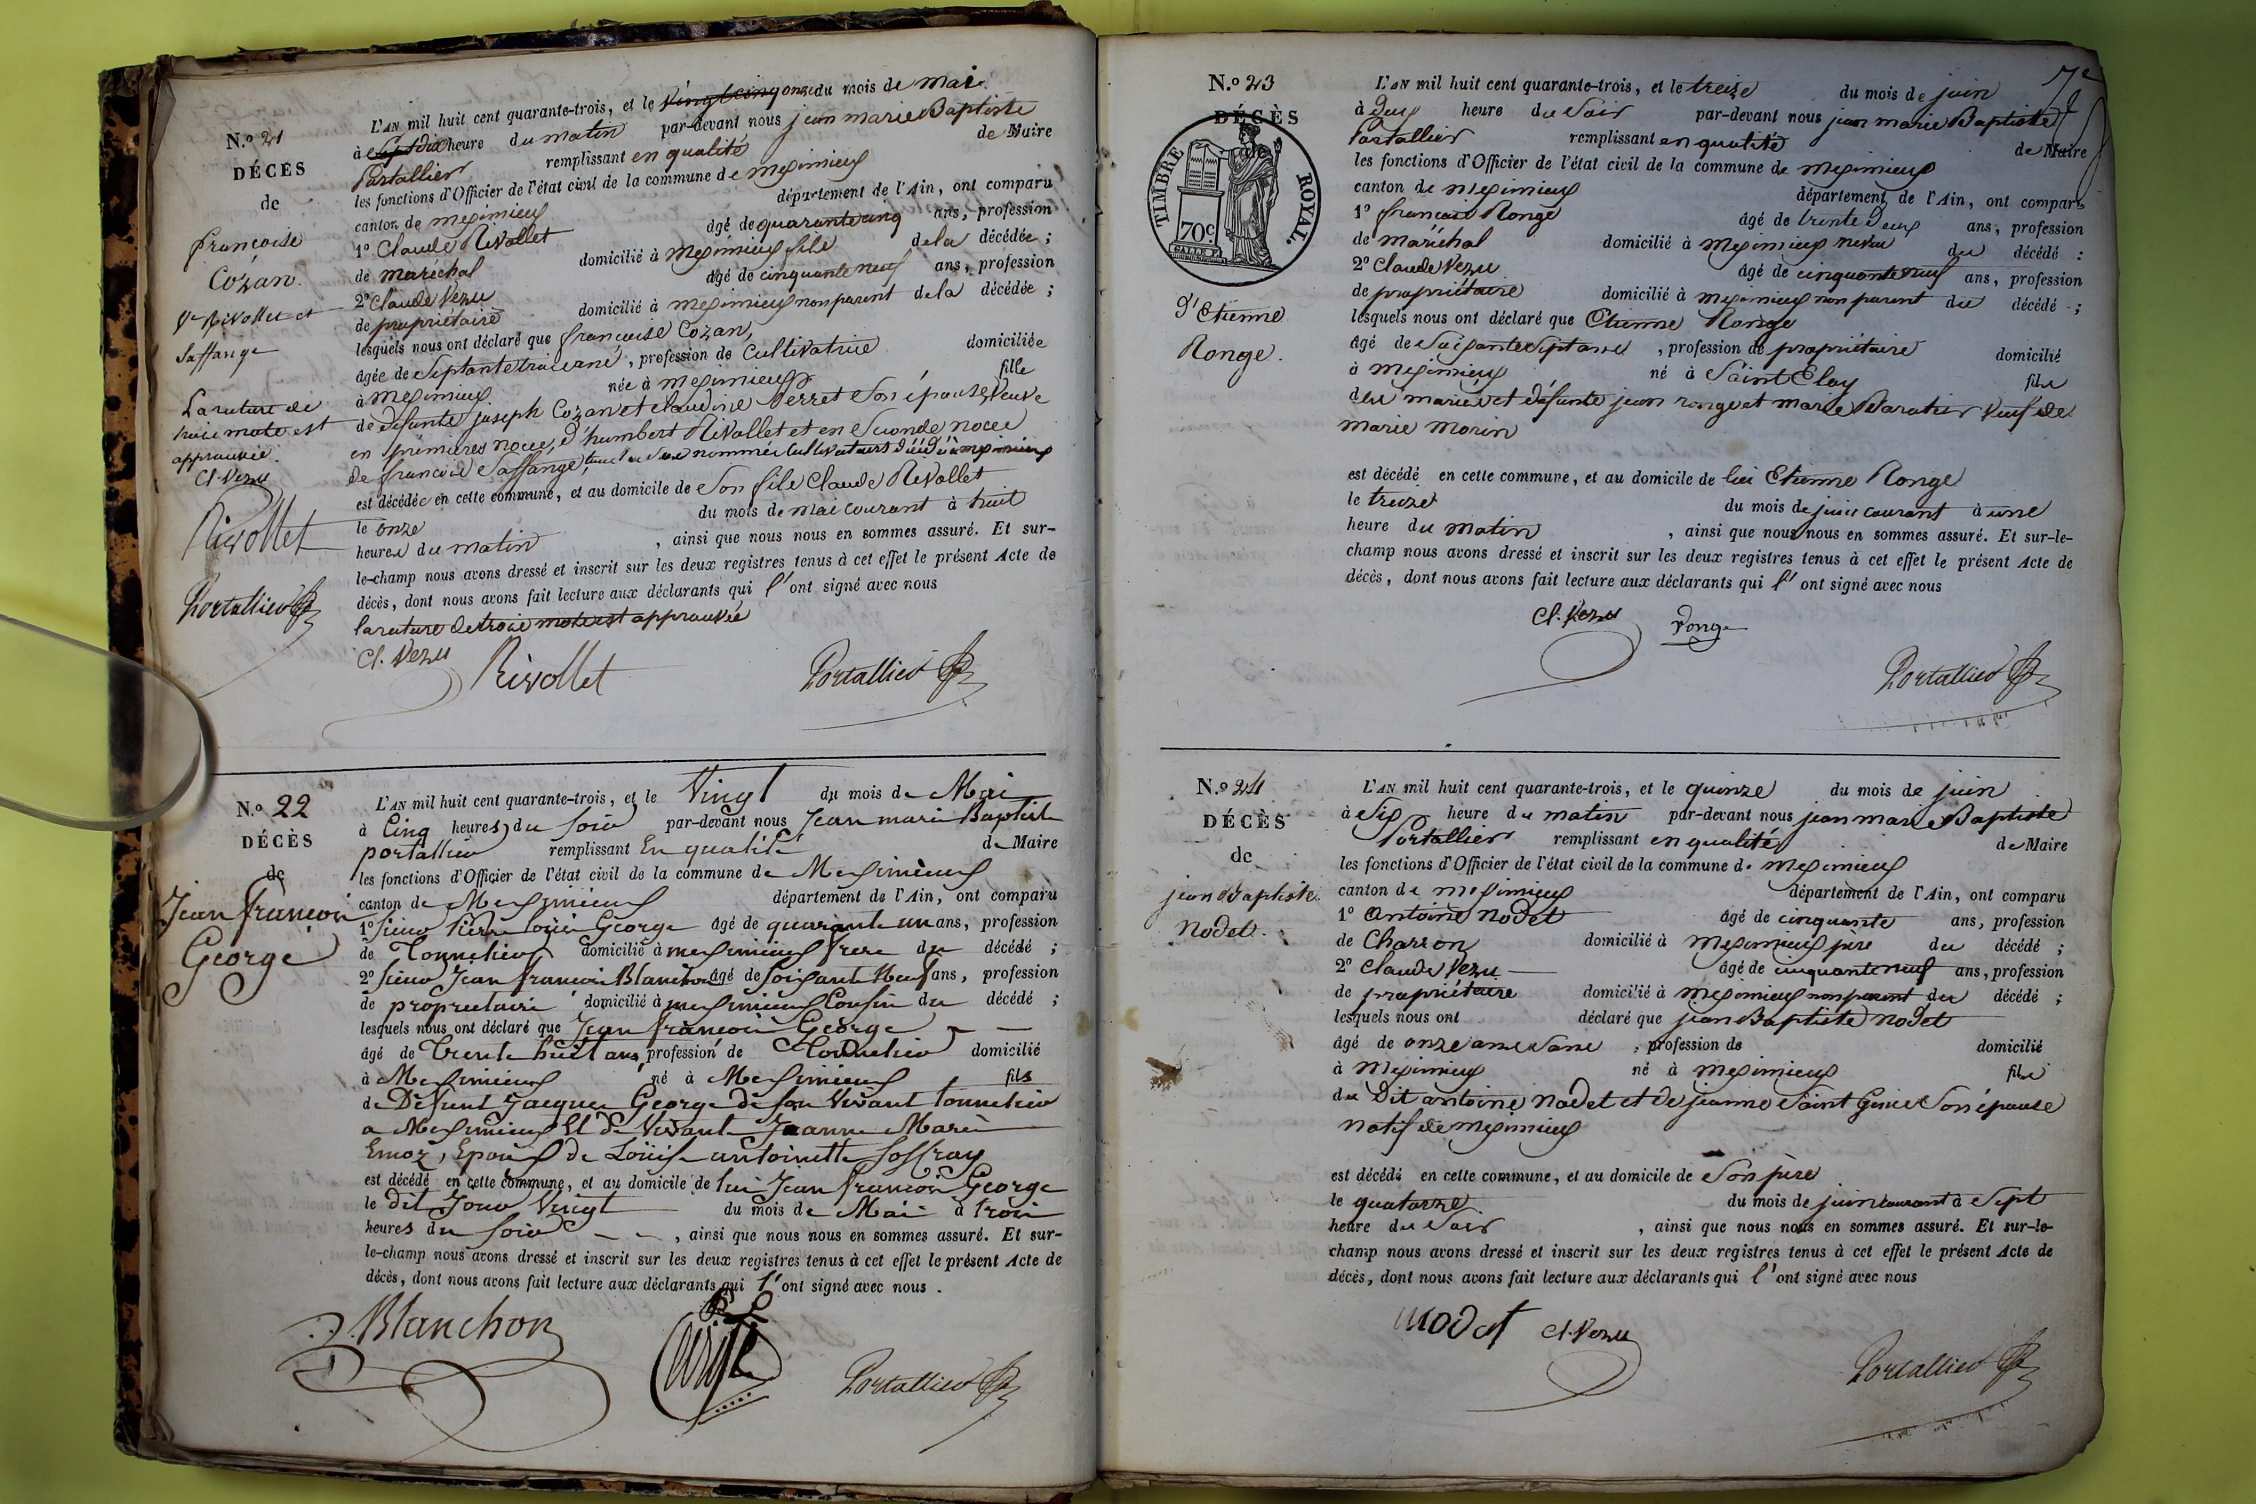 N.º 21
DÉCÈS
de
françoise
Cozan.
Ve Rivollet et
Saffange
La rature de
trois mots est
approuvée.
Cl. Vezu
Rivollet
Portallier
L'AN mil huit cent quarante-trois, et le vingt cinq onze du mois de mai
à dix heure du matin par-devant nous jean marie Baptiste
Portallier remplissant en qualité de Maire
les fonctions d'Officier de l'état civil de la commune de meximieux
canton de meximieux département de l'Ain, ont comparu
1º Claude Rivollet âgé de quarante cinq ans, profession
de maréchal domicilié à meximieux fils de la décédée ;
2º Claude Vezu âgé de cinquante neuf ans, profession
de propriétaire domicilié à meximieux non parent de la décédée ;
lesquels nous ont déclaré que françoise Cozan,
âgée de Septante trois ans, profession de Cultivatrice domiciliée
à meximieux née à meximieux fille
de défunts joseph Cozan et claudine Perret Son épouse, Veuve
en premières noces, d'humbert Rivollet et en Seconde noces
de francois Saffange, tous les Sus nommés Cultivateurs décédés à meximieux
est décédée en cette commune, et au domicile de Son fils Claude Rivollet
le onze du mois de mai courant à huit
heures du matin , ainsi que nous nous en sommes assuré. Et sur-
le-champ nous avons dressé et inscrit sur les deux registres tenus à cet effet le présent Acte de
décès, dont nous avons fait lecture aux déclarants qui l'ont signé avec nous
la rature de trois mots est approuvée
Cl. Vezu Rivollet Portallier
N.º 22
DÉCÈS
de
Jean françois
George
L'AN mil huit cent quarante-trois, et le Vingt du mois de Mai
à Cinq heures du Soir par-devant nous Jean marie Baptiste
portallier remplissant En qualité de Maire
les fonctions d'Officier de l'état civil de la commune de Meximieux
canton de Meximieux département de l'Ain, ont comparu
1º Sieur Pierre Loüis George âgé de quarante un ans, profession
de Tonnelier domicilié à meximieux frere du décédé ;
2º Sieur Jean francois Blanchon âgé de Soixant Neuf ans, profession
de proprietaire domicilié à meximieux Cousin du décédé ;
lesquels nous ont déclaré que Jean francois George
âgé de Trente huit ans, profession de Tonnelier domicilié
à Meximieux né à Meximieux fils
de Défunt Jacques George de Son Vivant tonnelier
a Meximieux Et de Vivante Jeanne Marie
Emoz, Epoux de Loüise antoinette Soffray
est décédé en cette commune, et au domicile de lui Jean francois George
le dit Jour Vingt du mois de Mai à trois
heures du Soir , ainsi que nous nous en sommes assuré. Et sur-
le-champ nous avons dressé et inscrit sur les deux registres tenus à cet effet le présent Acte de
décès, dont nous avons fait lecture aux déclarants qui l'ont signé avec nous.
Blanchon Portallier
7e
N.º 23
DÉCÈS
TIMBRE ROYAL.
70c
d'Etienne
Ronge.
L'AN mil huit cent quarante-trois, et le treize du mois de juin
à deux heure du Soir par-devant nous jean marie Baptiste
Portallier remplissant en qualité de Maire
les fonctions d'Officier de l'état civil de la commune de meximieux
canton de meximieux département de l'Ain, ont comparu
1º francois Ronge âgé de trente deux ans, profession
de maréchal domicilié à meximieux neveu du décédé ;
2º Claude Vezu âgé de cinquante neuf ans, profession
de propriétaire domicilié à meximieux non parent du décédé ;
lesquels nous ont déclaré que Etienne Ronge
âgé de Soixante Sept ans, profession de propriétaire domicilié
à meximieux né à Saint Eloy fils
des mariés et défunts jean ronge et marie Baratier Veuf de
marie morin
est décédé en cette commune, et au domicile de lui Etienne Ronge
le treize du mois de juin courant à une
heure du matin , ainsi que nous nous en sommes assuré. Et sur-le-
champ nous avons dressé et inscrit sur les deux registres tenus à cet effet le présent Acte de
décès, dont nous avons fait lecture aux déclarants qui l'ont signé avec nous
Cl. Vezu Ronge
Portallier
N.º 24
DÉCÈS
de
jean Baptiste
Nodet.
L'AN mil huit cent quarante-trois, et le quinze du mois de juin
à Six heure du matin par-devant nous jean marie Baptiste
Portallier remplissant en qualité de Maire
les fonctions d'Officier de l'état civil de la commune de meximieux
canton de meximieux département de l'Ain, ont comparu
1º antoine Nodet âgé de cinquante ans, profession
de Charron domicilié à meximieux père du décédé ;
2º Claude Vezu âgé de cinquante neuf ans, profession
de propriétaire domicilié à meximieux non parent du décédé ;
lesquels nous ont déclaré que jean Baptiste Nodet
âgé de onze ans Sans , profession de domicilié
à meximieux né à meximieux fils
du Dit antoine Nodet et de jeanne Saint Genier Son épouse
natif de meximieux
est décédé en cette commune, et au domicile de Son père
le quatorze du mois de juin courant à Sept
heure du Soir , ainsi que nous nous en sommes assuré. Et sur-le-
champ nous avons dressé et inscrit sur les deux registres tenus à cet effet le présent Acte de
décès, dont nous avons fait lecture aux déclarants qui l'ont signé avec nous
Nodet Cl. Vezu
Portallier